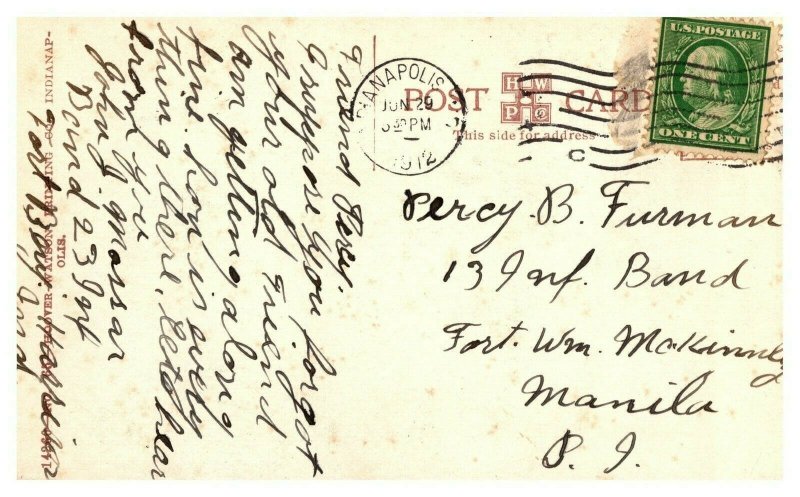 POST CARD
This side for address
H W
P Co
INDIANAPOLIS
JUN 29
3 30 PM
1912
C
U.S. POSTAGE
ONE CENT
Percy. B. Furman
13 Inf. Band
Fort. Wm. McKinney
Manila
P. I.
Friend Percy.
I suppose you forgot
your old friend
am getting along
fine. how is every
thing there. Lets hear
from you
John J.
Band 23 Inf
Fort Benj. Harrison
Ind
HOOVER-WATSON PRINTING CO. INDIANAP-
OLIS.